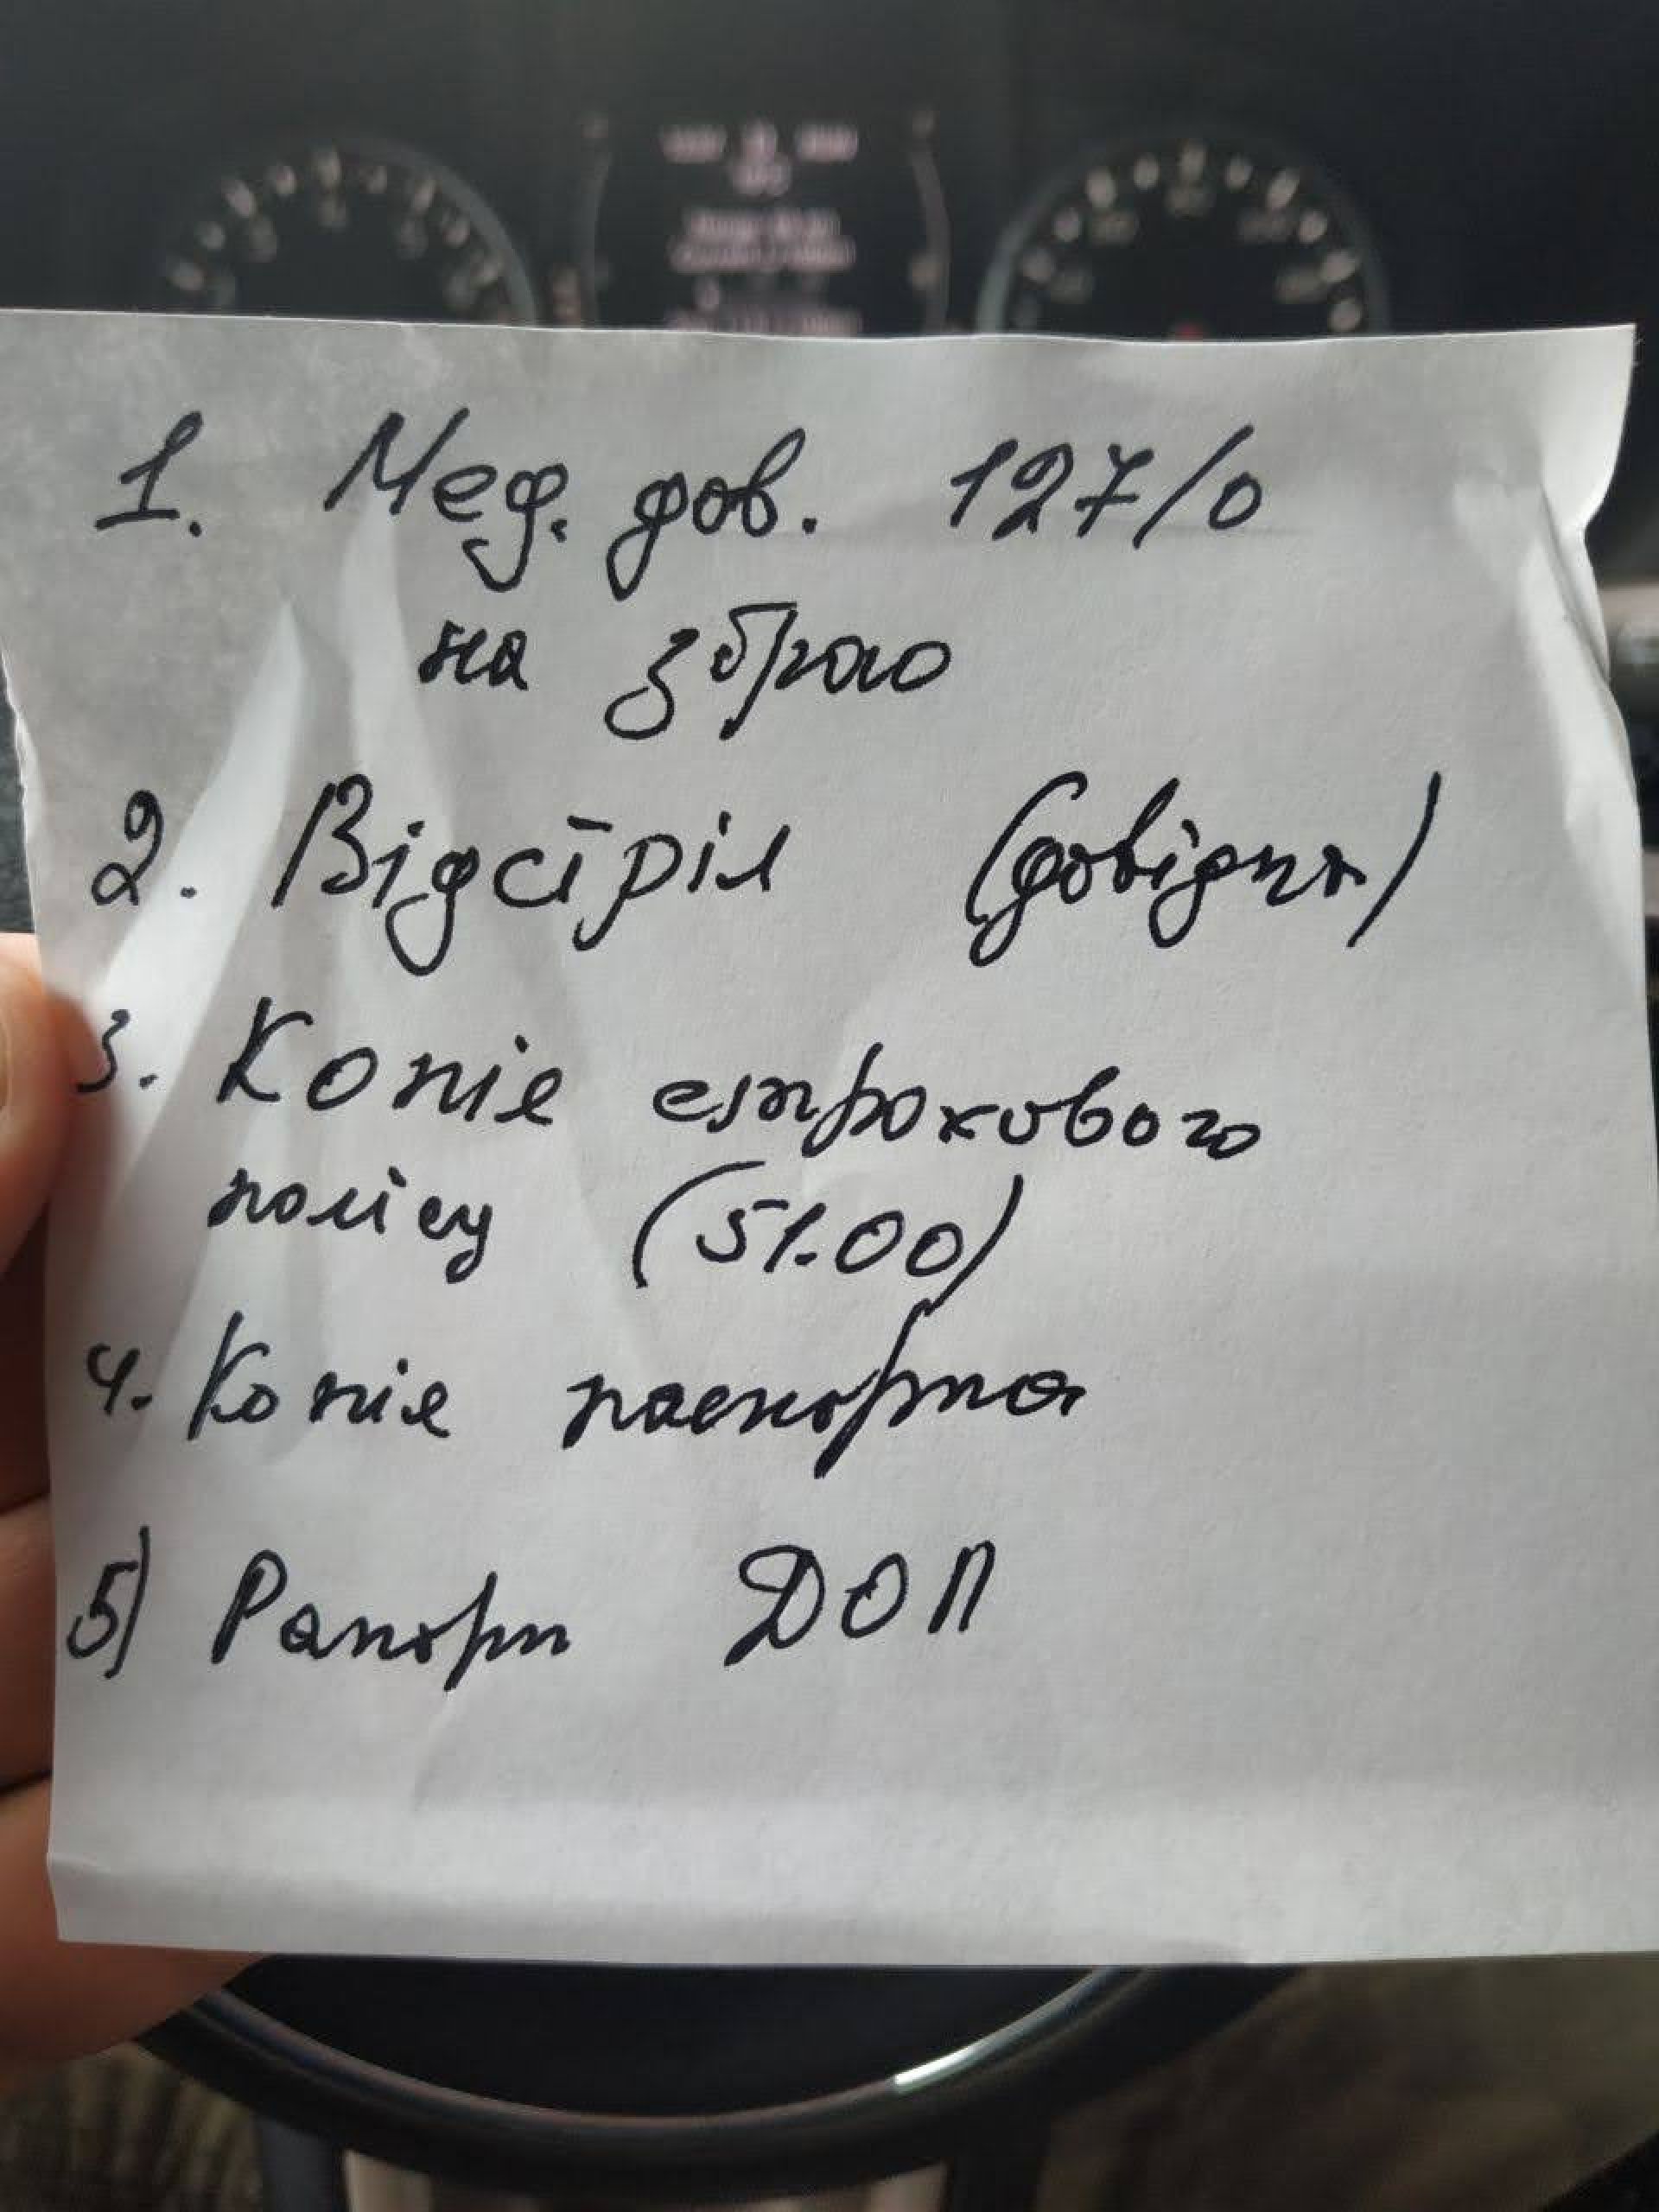 1. Мед. дов. 127/о
на зброю
2. Відстріл (довідка)
3. Копіє страхового
полісу (51.00)
4. Копіє паспорта
5) Рапорт ДОП